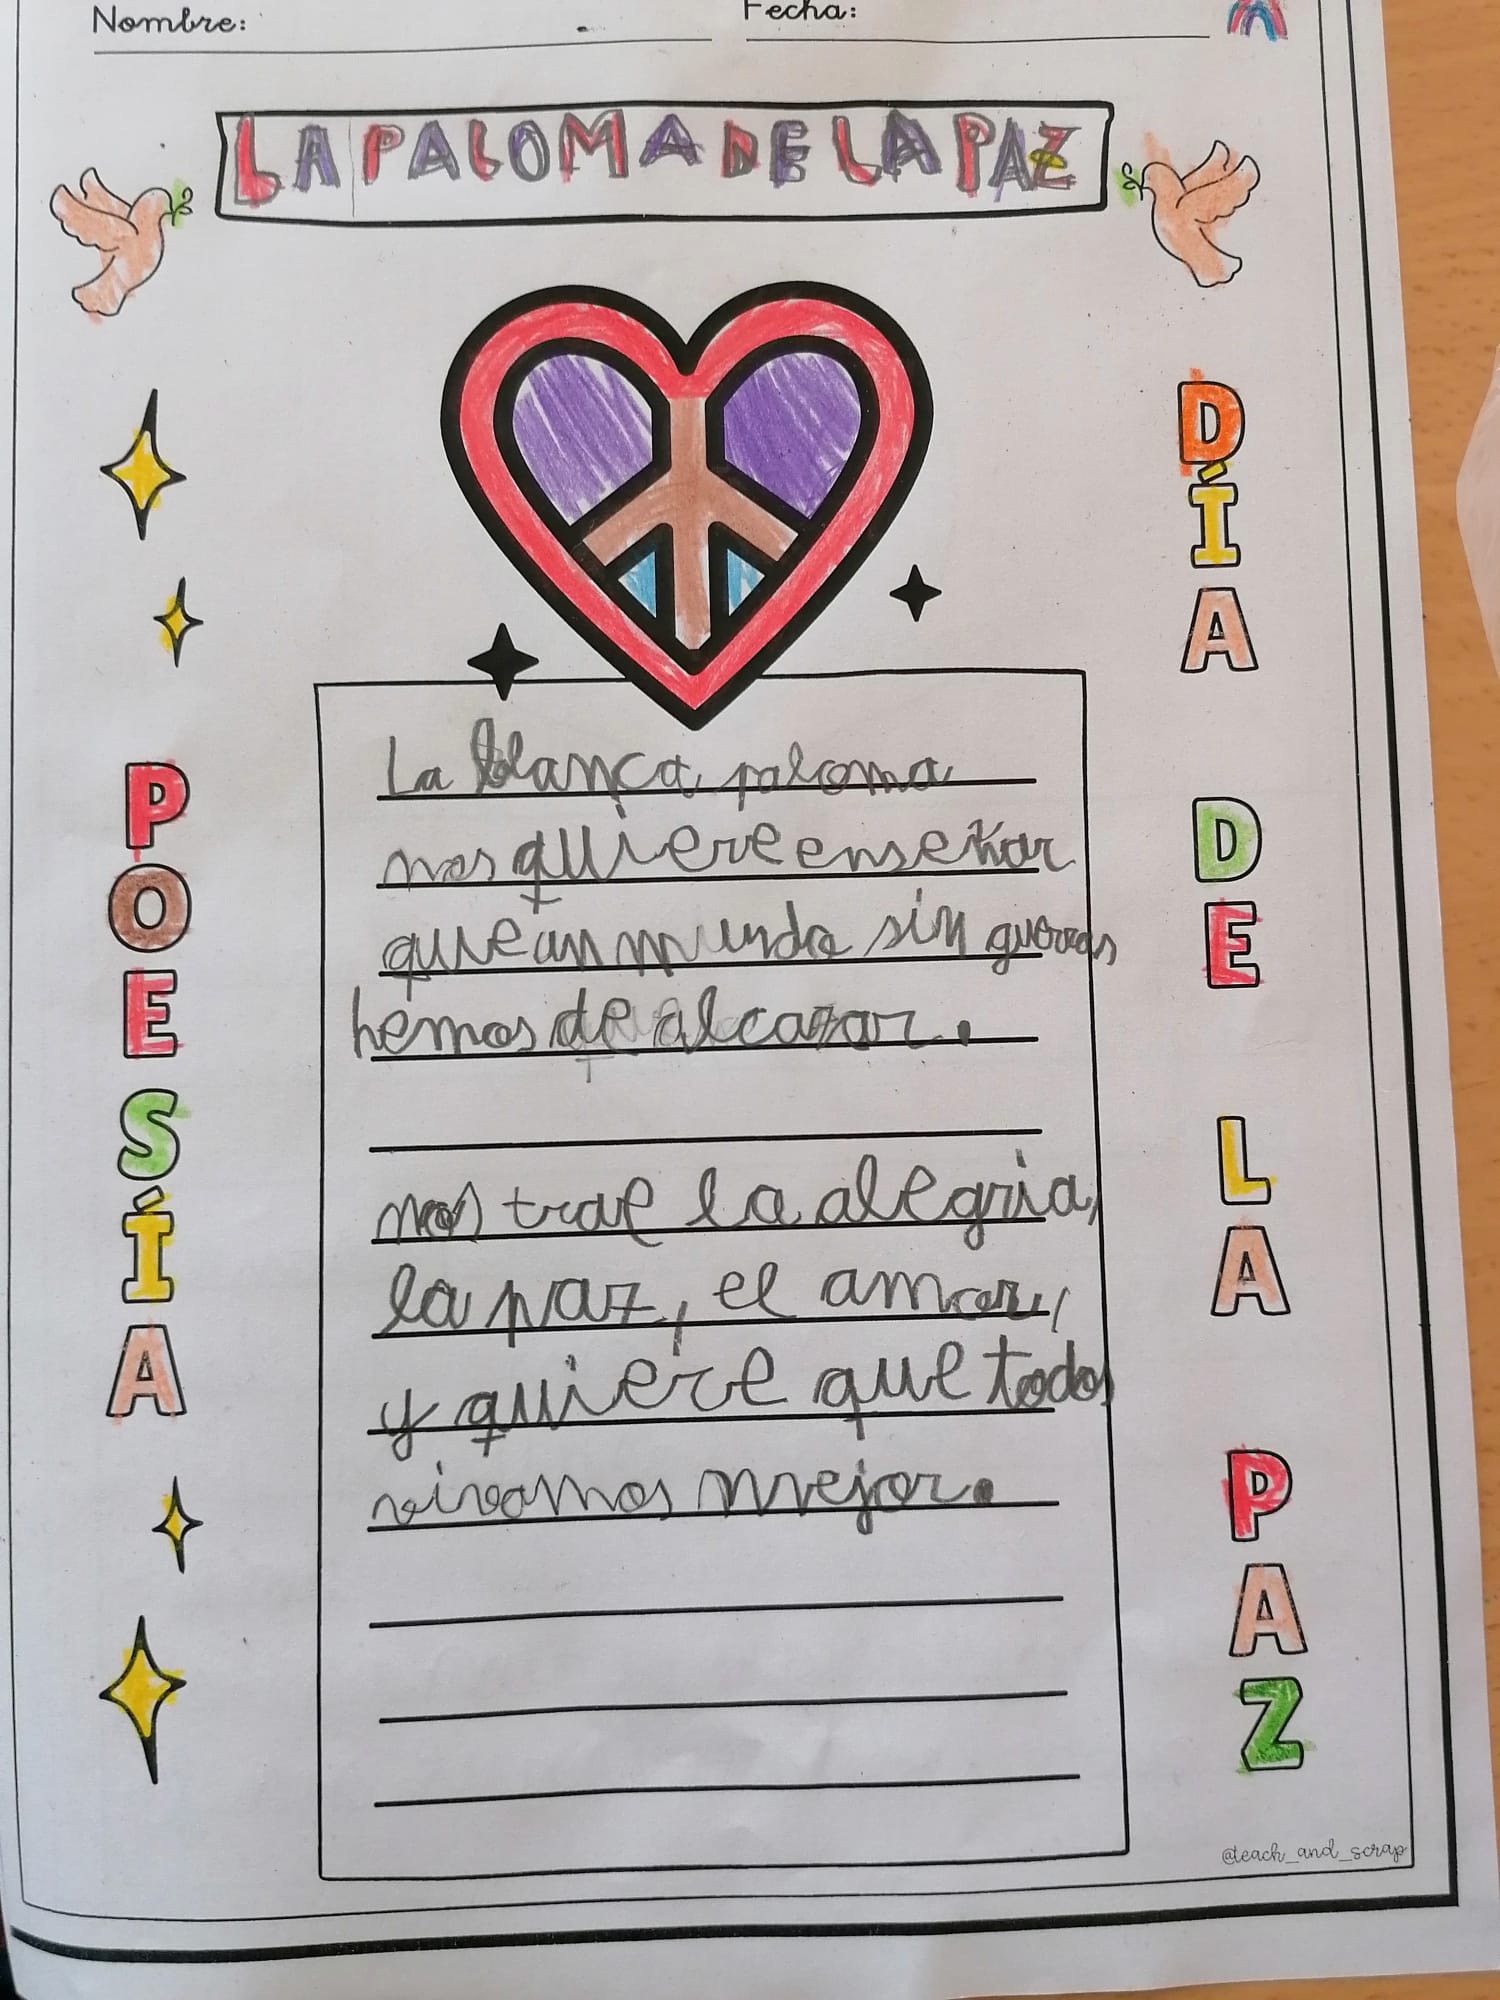 Nombre:
Fecha:
LA PALOMA DE LA PAZ
POESÍA
DÍA DE LA PAZ
La blanca paloma
nos quiere enseñar
que un mundo sin guerras
hemos de alcazar.
nos trae la alegria,
la paz, el amor,
y quiere que todos
vivamos mejor.
@teach_and_scrap